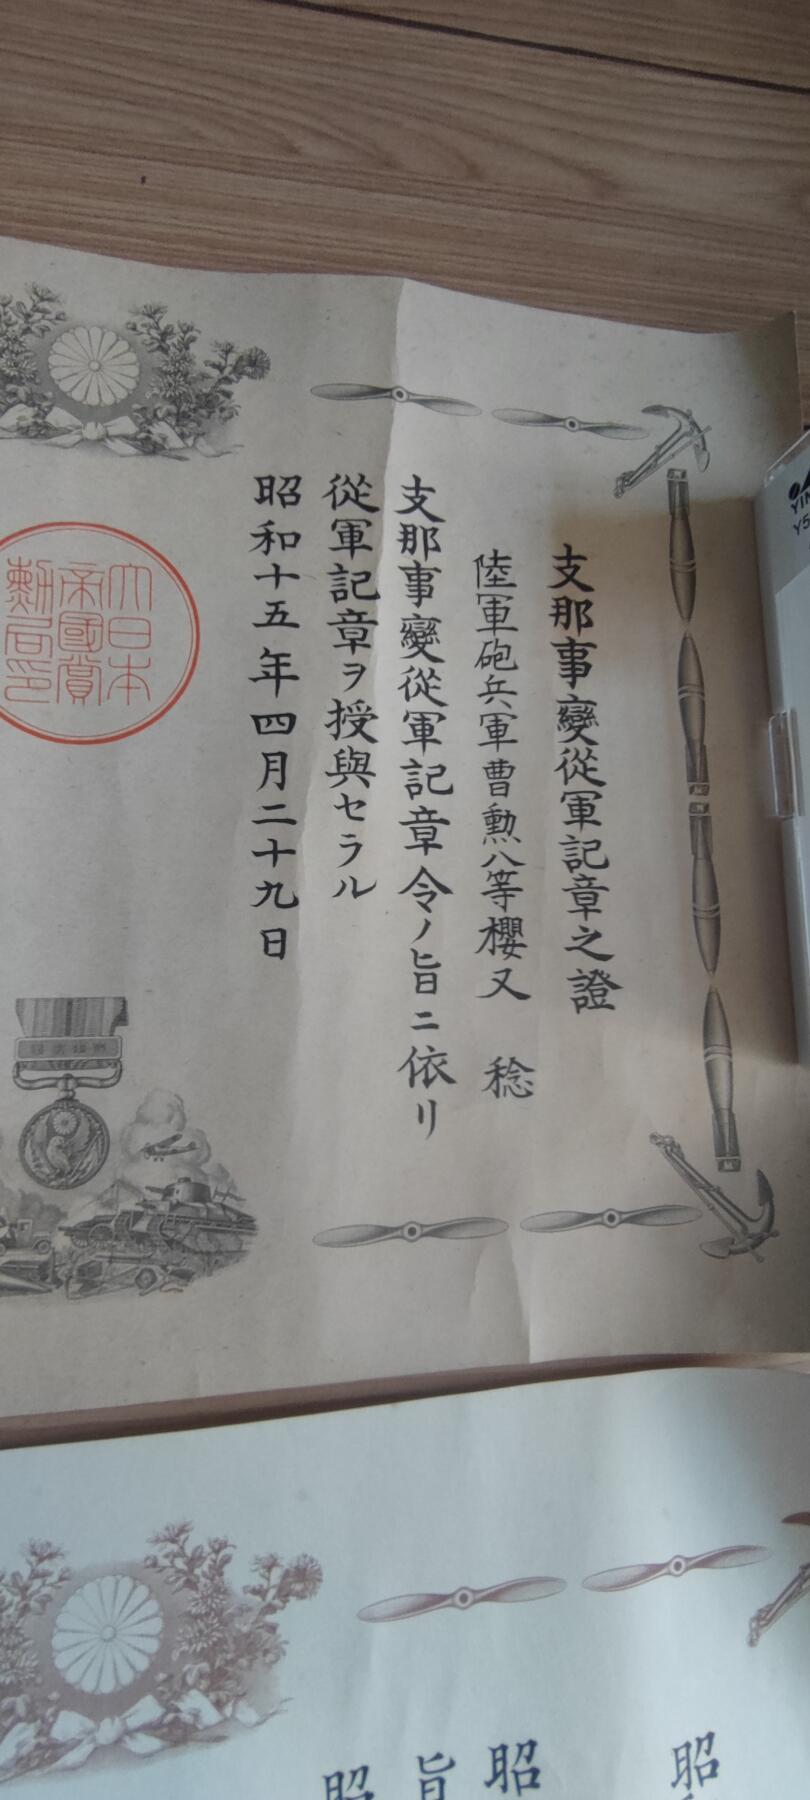 支那事變從軍記章之證
陸軍砲兵軍曹勲八等櫻又 稔
支那事變從軍記章令ノ旨ニ依リ
從軍記章ヲ授與セラル
昭和十五年四月二十九日
大日本
帝國賞
勳局印
YIN
Y5
昭
昭
旨
昭